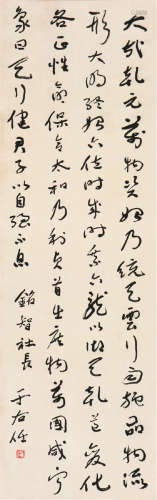 大哉乾元萬物資始乃統天雲行雨施品物流
形大明終始六位時成時乘六龍以御天乾道變化
各正性命保合太和乃利貞首出庶物萬國咸寧
象曰天行健君子以自強不息
銘智社長
于右任